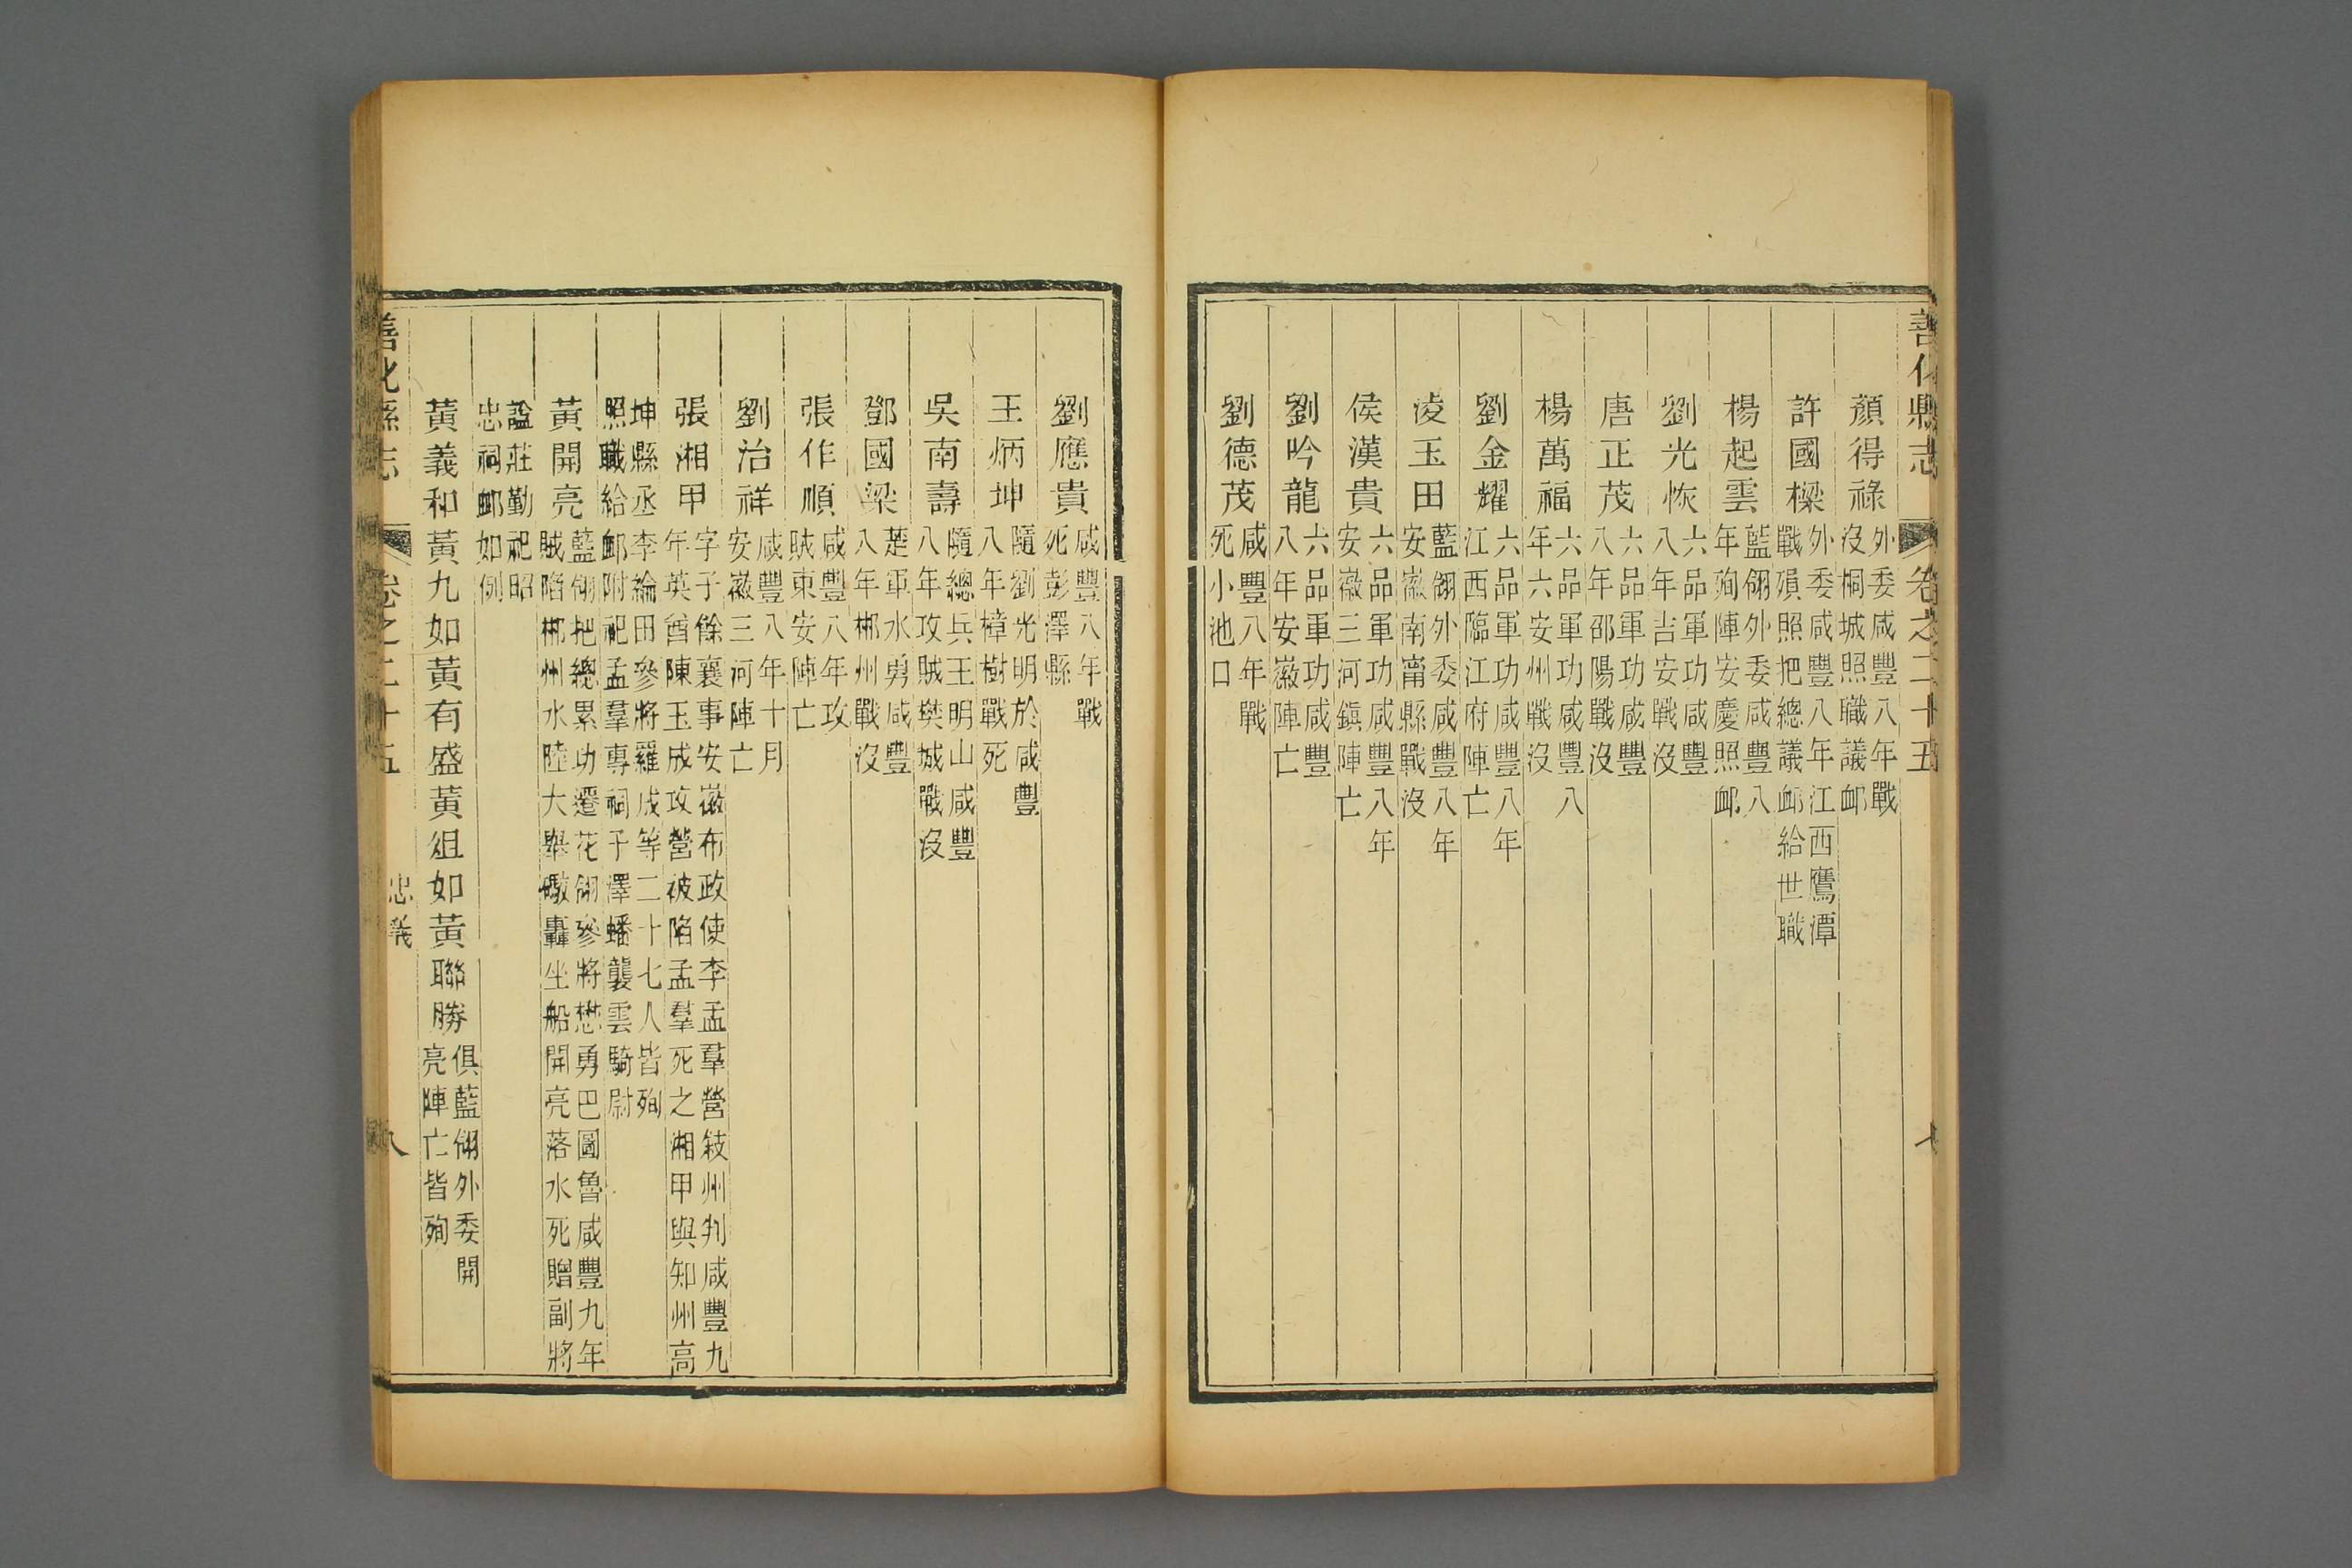 善化縣志 卷之二十五
顏得祿 外委咸豐八年戰
沒桐城照職議卹
許國樑 外委咸豐八年江西鷹潭
戰殞照把總議卹給世職
楊起雲 藍翎外委咸豐八
年殉陣安慶照卹
劉光恢 六品軍功咸豐
八年吉安戰沒
唐正茂 六品軍功咸豐
八年邵陽戰沒
楊萬福 六品軍功咸豐八
年六安州戰沒
劉金耀 六品軍功咸豐八年
江西臨江府陣亡
淩玉田 藍翎外委咸豐八年
安徽南甯縣戰沒
侯漢貴 六品軍功咸豐八年
安徽三河鎭陣亡
劉吟龍 六品軍功咸豐
八年安徽陣亡
劉德茂 咸豐八年戰
死小池口
劉應貴 咸豐八年戰
死彭澤縣
王炳坤 隨劉光明於咸豐
八年樟樹戰死
吳南壽 隨總兵王明山咸豐
八年攻賊樊城戰沒
鄧國梁 楚軍水勇咸豐
八年郴州戰沒
張作順 咸豐八年攻
賊東安陣亡
劉治祥 咸豐八年十月
安徽三河陣亡
張湘甲 字子餘襄事安徽布政使李孟羣營敍州判咸豐九
年英酋陳玉成攻營被陷孟羣死之湘甲與知州高
坤縣丞李綸田參將羅成等二十七人皆殉
照職給卹附祀孟羣專祠子澤蟠襲雲騎尉
黃開亮 藍翎把總累功遷花翎參將懋勇巴圖魯咸豐九年
賊陷郴州水陸大舉礮轟坐船開亮落水死贈副將
諡莊勤祀昭
忠祠卹如例
黃義和黃九如黃有盛黃俎如黃聯勝 俱藍翎外委開
亮陣亡皆殉
善化縣志 卷之二十五 忠義 八